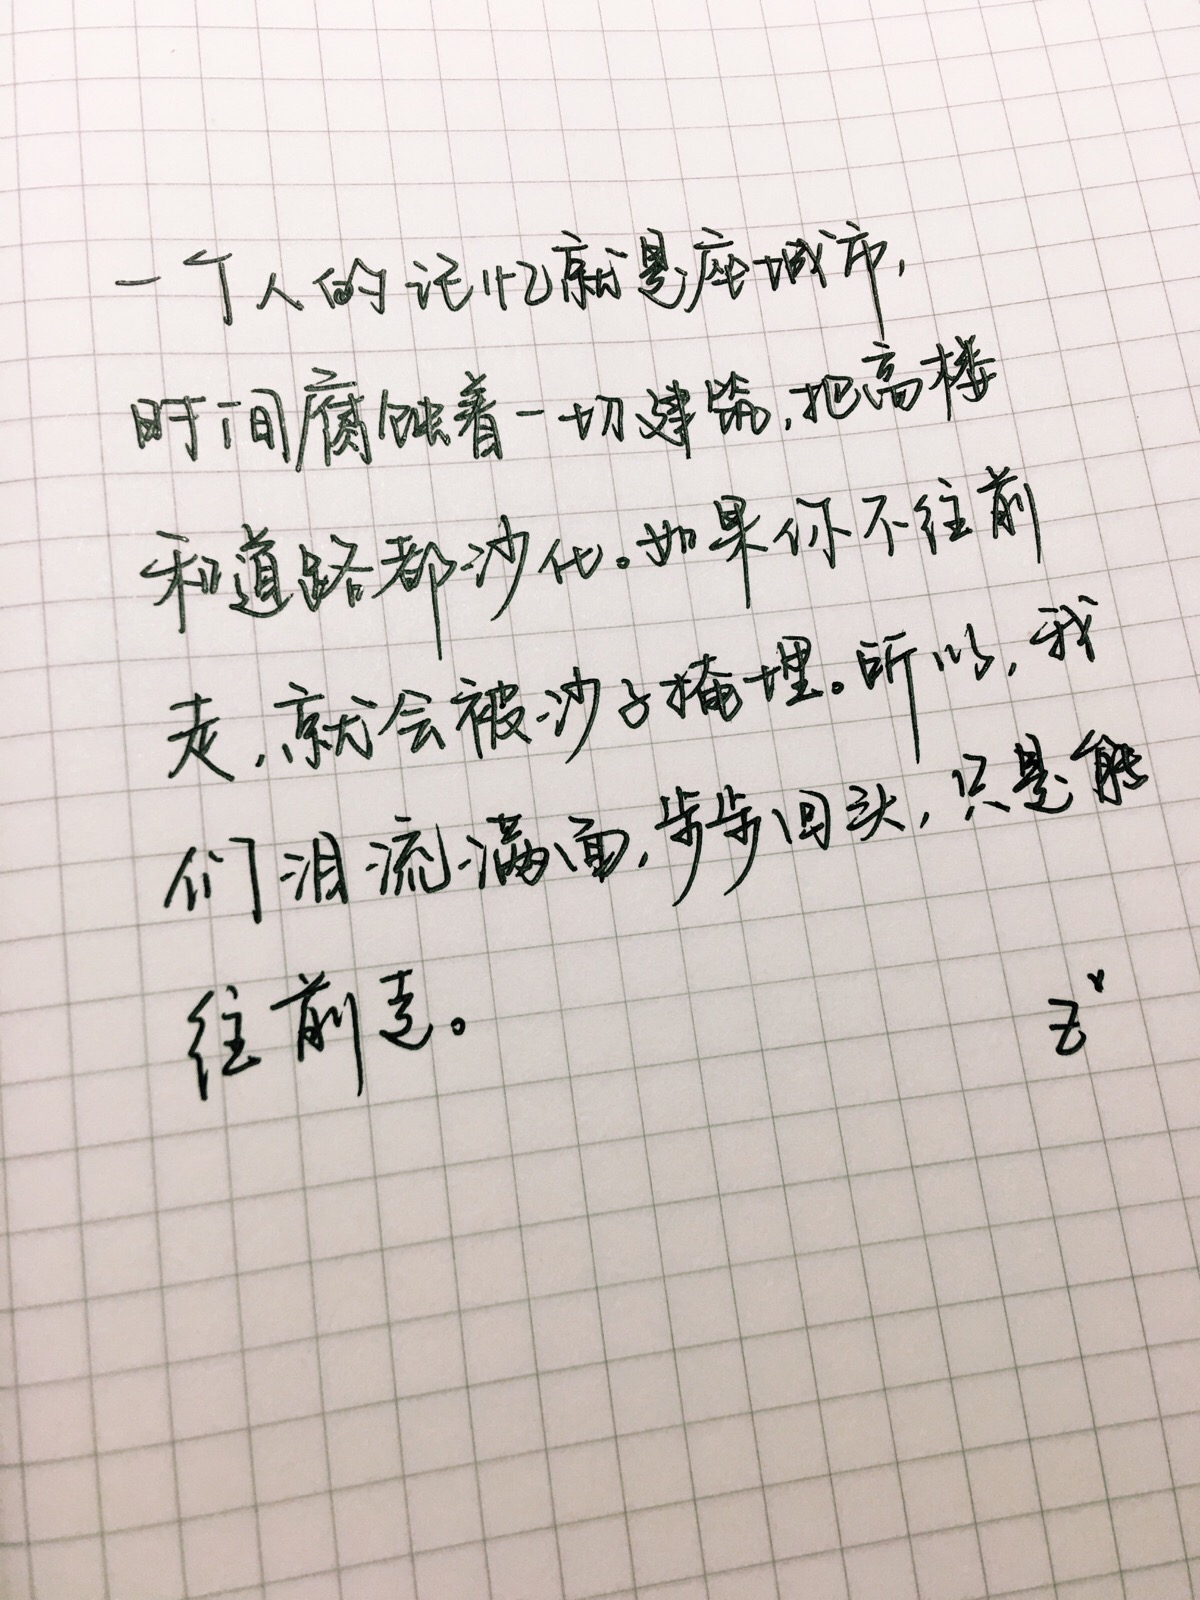 一个人的记忆就是座城市,
时间腐蚀着一切建筑,把高楼
和道路都沙化。如果你不往前
走,就会被沙子掩埋。所以,我
们泪流满面,步步回头,只是能
往前走。